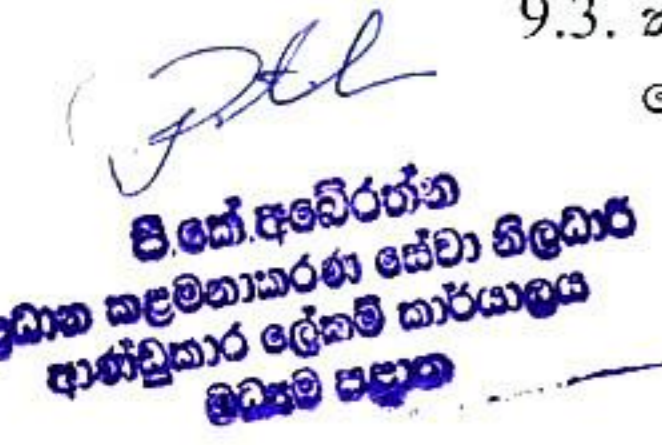 9.3.
පී.කේ.අබේරත්න
ප්‍රධාන කළමනාකරණ සේවා නිලධාරී
ආණ්ඩුකාර ලේකම් කාර්යාලය
මධ්‍යම පළාත